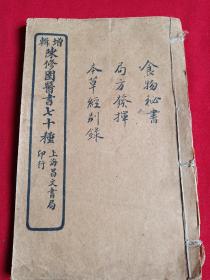 食物祕書
局方發揮
本草經別錄
增輯陳修園醫書七十種
上海昌文書局印行